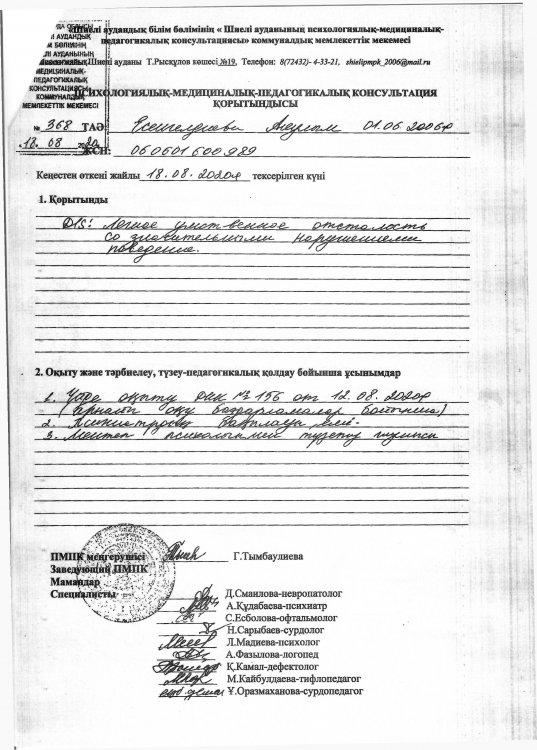 «Шиелі аудандық білім бөлімінің « Шиелі ауданының психологиялық-медициналық-
педагогикалық консультациясы» коммуналдық мемлекеттік мекемесі
Шиелі ауданы Т.Рысқұлов көшесі №19, Телефон: 8(72432)- 4-33-21, shielipmpk_2006@mail.ru
ПСИХОЛОГИЯЛЫҚ-МЕДИЦИНАЛЫҚ-ПЕДАГОГИКАЛЫҚ КОНСУЛЬТАЦИЯ
ҚОРЫТЫНДЫСЫ
АУДАНДЫҚ
М БӨЛІМІНІҢ
ЛІ АУДАНЫНЫҢ
МЕДИЦИНАЛЫҚ-
ПЕДАГОГИКАЛЫҚ
КОНСУЛЬТАЦИЯСЫ
КОММУНАЛДЫҚ
МЕМЛЕКЕТТІК МЕКЕМЕСІ
№ 368 ТАӘ: 01.06.2006ж
18.08 2020
ЖСН: 060601600989
Кеңестен өткені жайлы 18.08.2020ж тексерілген күні
1. Қорытынды
DS: Легкое умственное отсталость
со значительными нарушениями
поведение.
2. Оқыту және тәрбиелеу, түзеу-педагогикалық қолдау бойынша ұсынымдар
1. Үйде оқыту №156 от 12.08.2020ж
(арнаулы оқу бағдарламалар бойынша)
2.
3. Мектеп психологымен түзету
ПМПК меңгерушісі Г.Тымбаулиева
Заведующий ПМПК
Мамандар
Специалисты Д.Смаилова-невропатолог
А.Құдабаева-психиатр
С.Есболова-офтальмолог
Н.Сарыбаев-сурдолог
Л.Мадиева-психолог
А.Фазылова-логопед
Қ.Камал-дефектолог
М.Кайбулдаева-тифлопедагог
Ұ.Оразмаханова-сурдопедагог